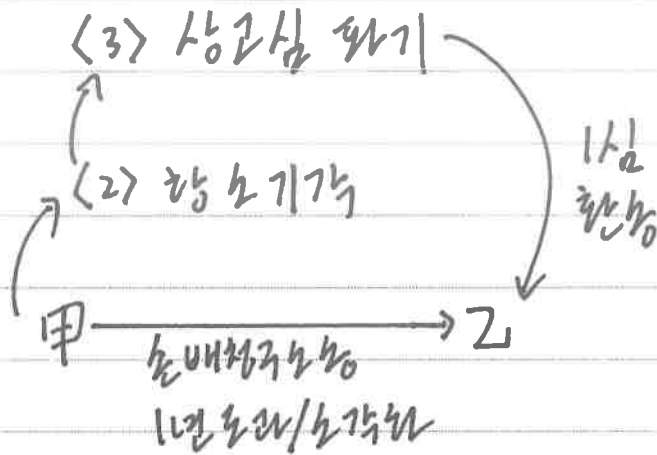 <3> 상고심 파기
<2> 항소기각
1심
환송
甲 → 乙
손배청구소송
1년 도과/소각하